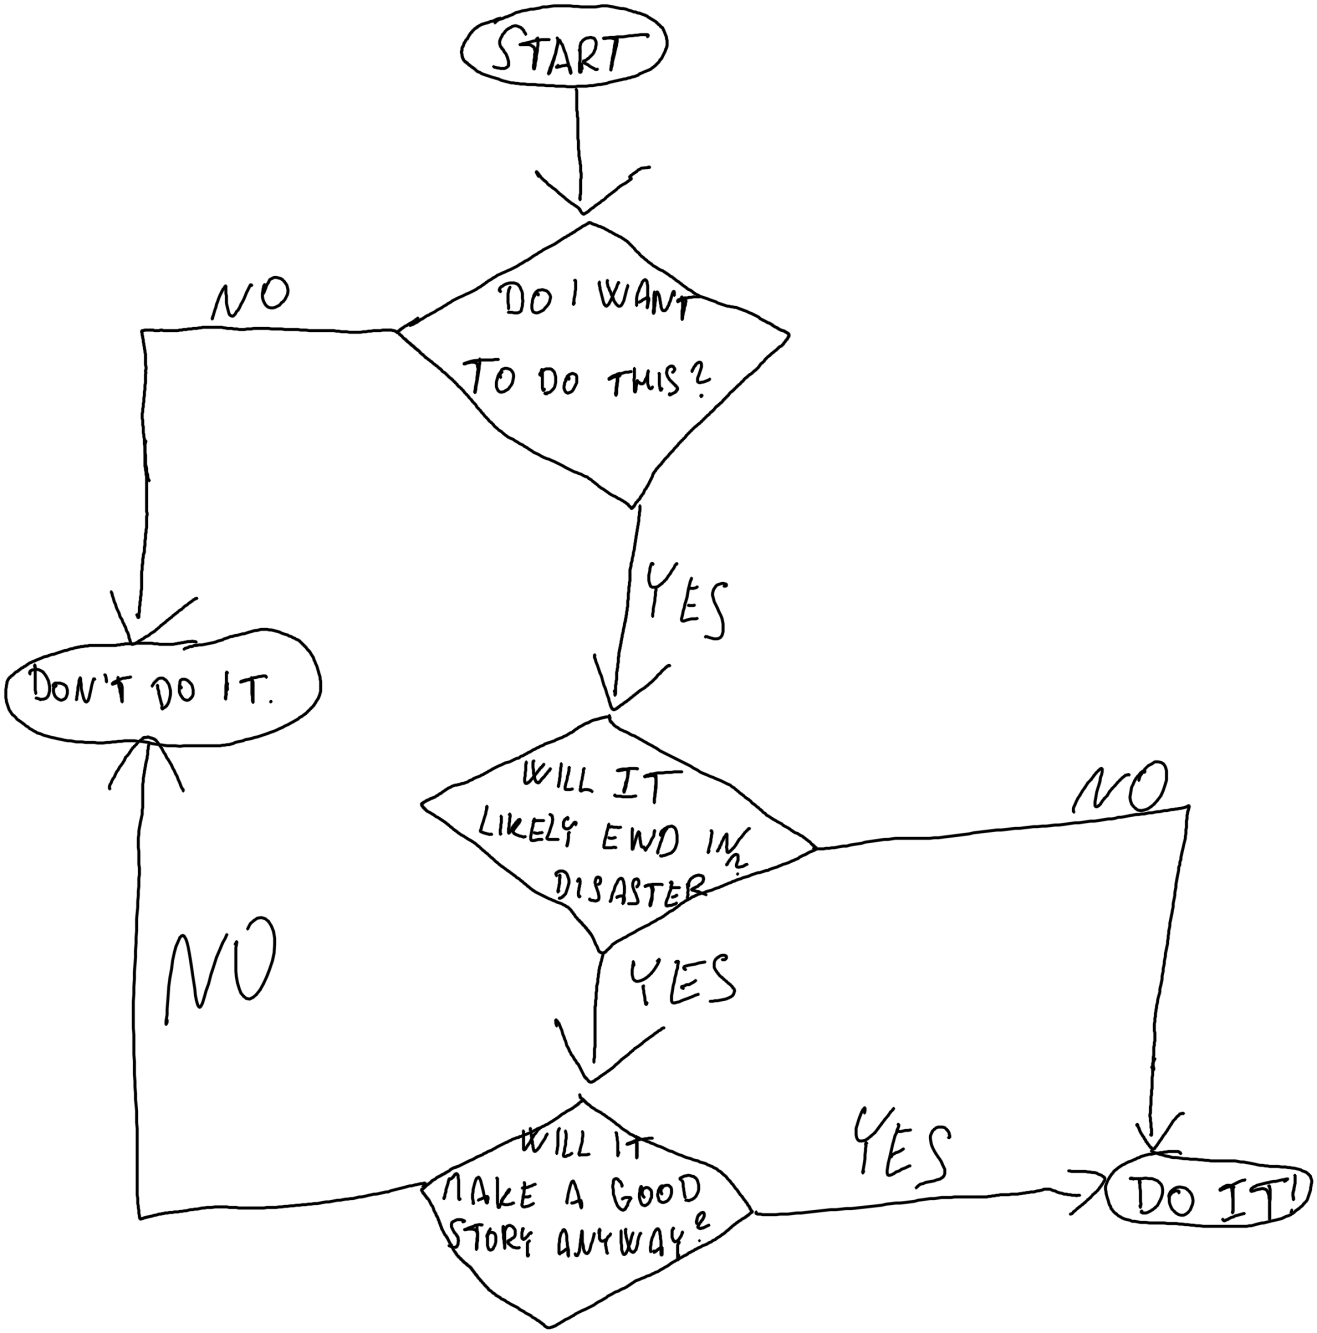 START
DO I WANT
TO DO THIS?
NO
YES
DON'T DO IT.
WILL IT
LIKELY END IN
DISASTER?
NO
YES
NO
WILL IT
MAKE A GOOD
STORY ANYWAY?
YES
DO IT!